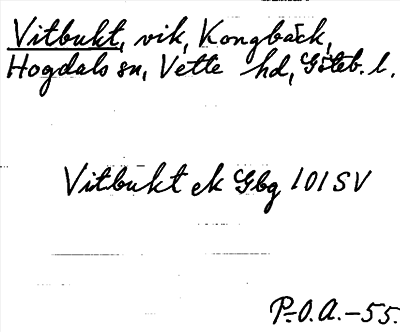 Vitbukt, vik, Kongbäck,
Hogdals sn, Vette hd, Göteb. l.
Vitbukt ek Gbg 101 SV
P-O.A.-55.